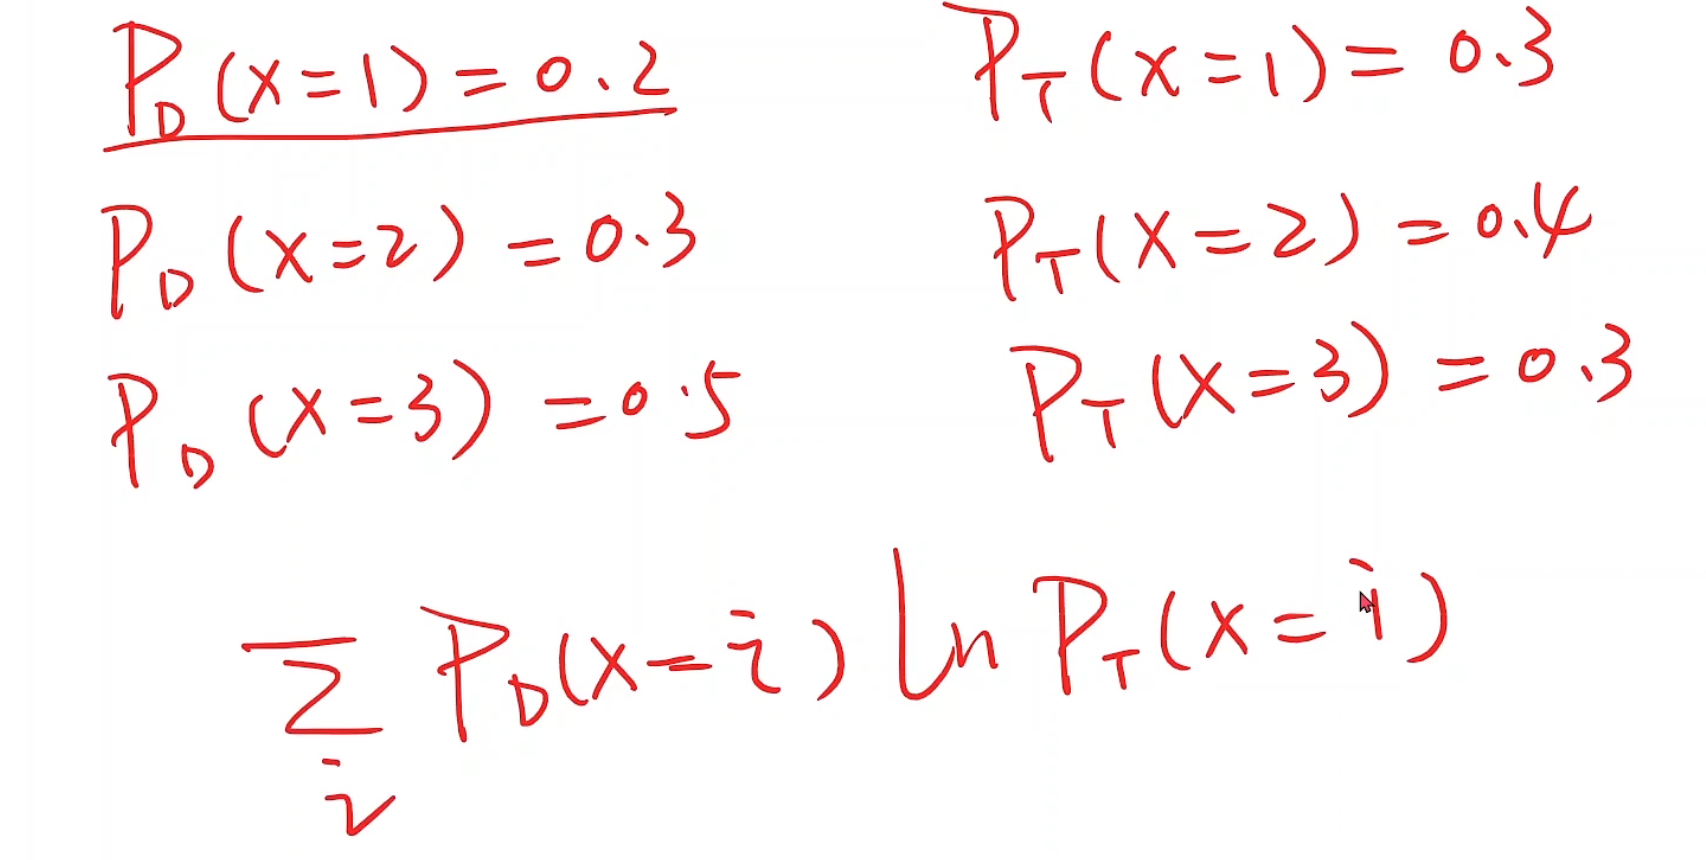 P_D (x=1) = 0.2
P_T (x=1) = 0.3
P_D (x=2) = 0.3
P_T (x=2) = 0.4
P_D (x=3) = 0.5
P_T (x=3) = 0.3
∑_i P_D (x=i) ln P_T (x=i)